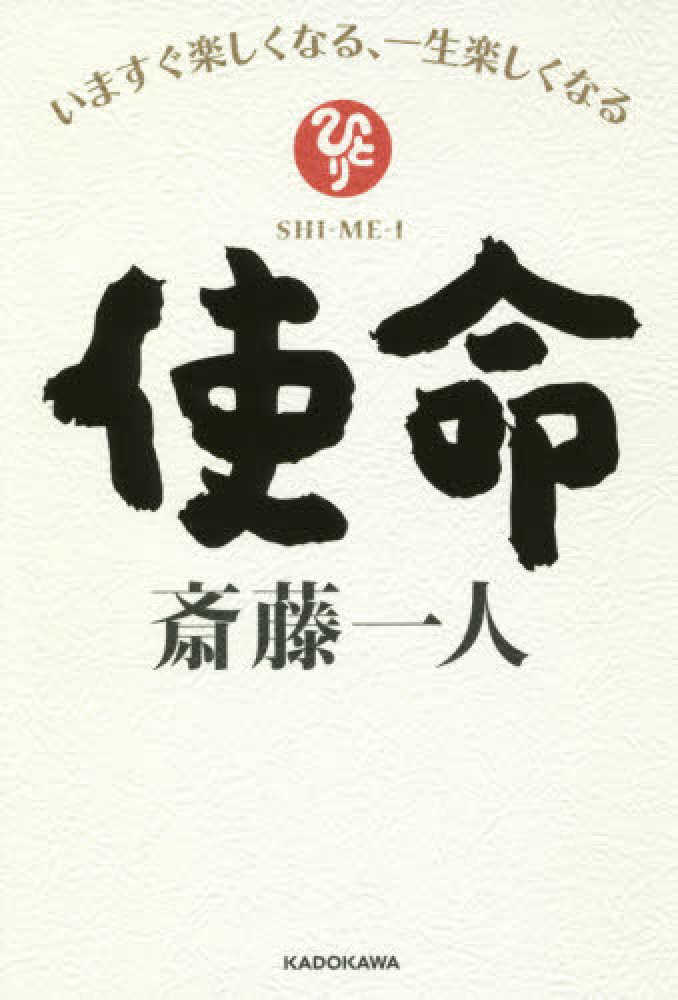 いますぐ楽しくなる、一生楽しくなる
ひとり
SHI-ME-I
使命
斎藤一人
KADOKAWA